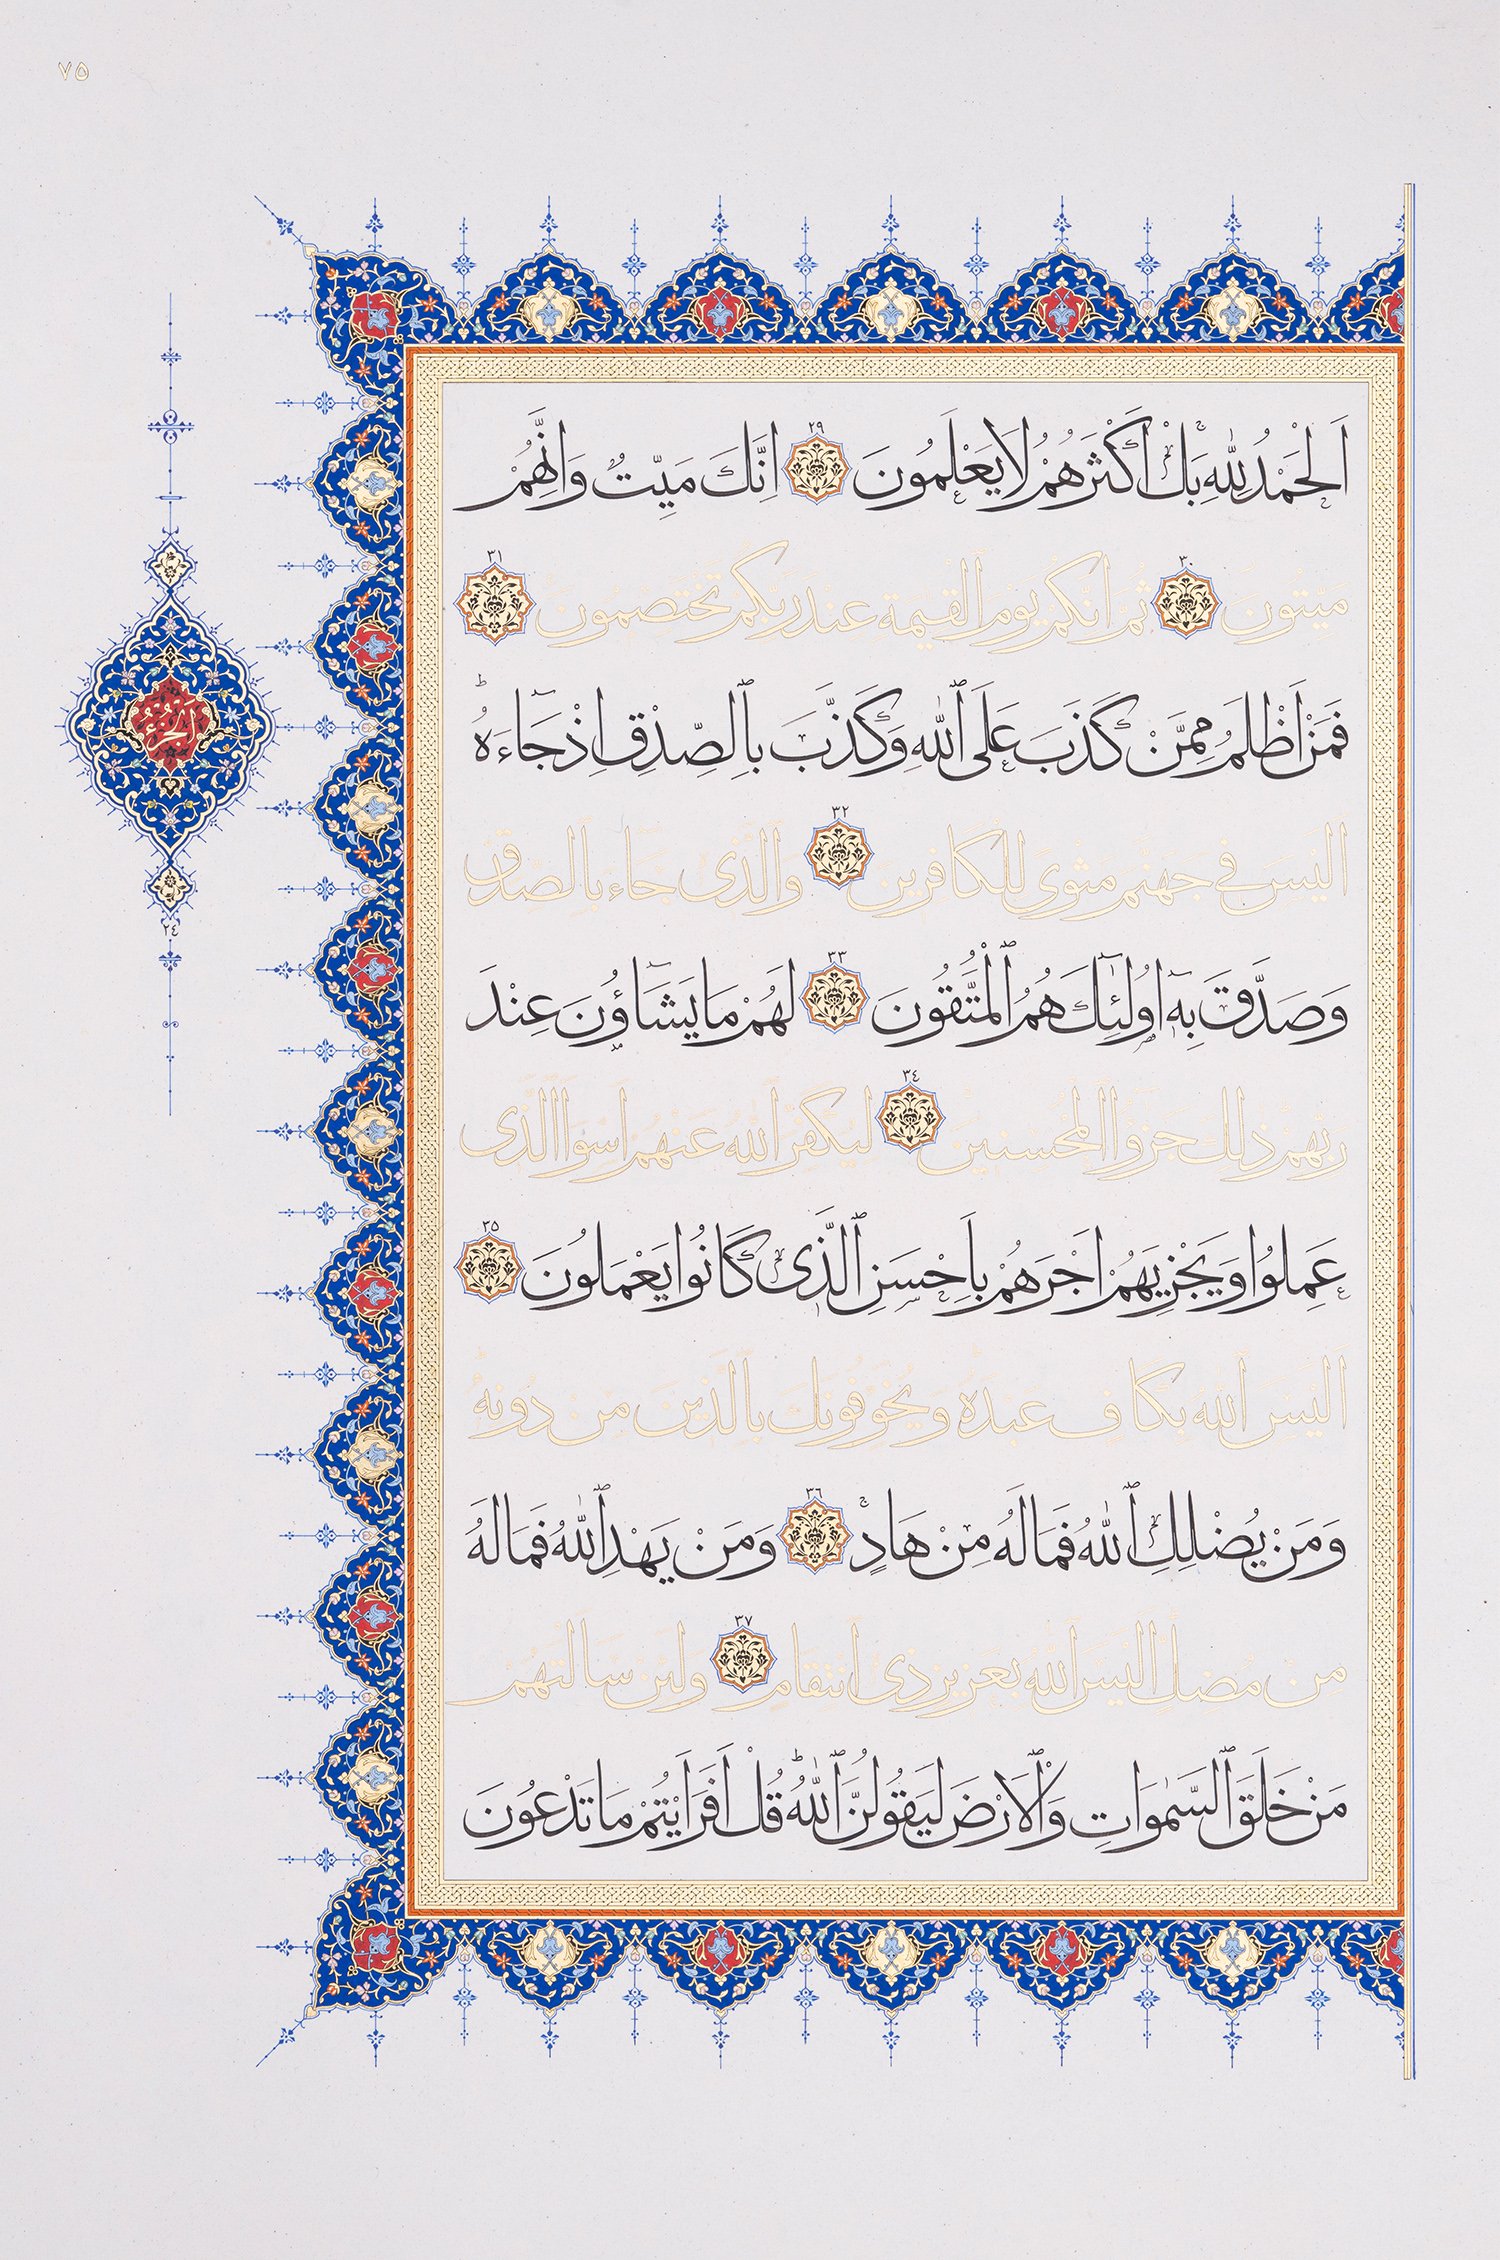 ٧٥
اَلْحَمْدُ لِلّٰهِ بَلْ اَكْثَرُهُمْ لَا يَعْلَمُونَ ٢٩ اِنَّكَ مَيِّتٌ وَاِنَّهُمْ
مَيِّتُونَ ٣٠ ثُمَّ اِنَّكُمْ يَوْمَ ٱلْقِيٰمَةِ عِنْدَ رَبِّكُمْ تَخْتَصِمُونَ ٣١
فَمَنْ اَظْلَمُ مِمَّنْ كَذَبَ عَلَى ٱللّٰهِ وَكَذَّبَ بِٱلصِّدْقِ اِذْ جَٓاءَهُ
اَلَيْسَ فِي جَهَنَّمَ مَثْوًى لِلْكَافِرِينَ ٣٢ وَٱلَّذِي جَٓاءَ بِٱلصِّدْقِ
وَصَدَّقَ بِهٖٓ اُو۬لٰٓئِكَ هُمُ ٱلْمُتَّقُونَ ٣٣ لَهُمْ مَا يَشَٓاؤُ۫نَ عِنْدَ
رَبِّهِمْ ذٰلِكَ جَزٰٓؤُا ٱلْمُحْسِنِينَ ٣٤ لِيُكَفِّرَ ٱللّٰهُ عَنْهُمْ اَسْوَاَ ٱلَّذِي
عَمِلُوا وَيَجْزِيَهُمْ اَجْرَهُمْ بِاَحْسَنِ ٱلَّذِي كَانُوا يَعْمَلُونَ ٣٥
اَلَيْسَ ٱللّٰهُ بِكَافٍ عَبْدَهُ وَيُخَوِّفُونَكَ بِٱلَّذِينَ مِنْ دُونِهٖ
وَمَنْ يُضْلِلِ ٱللّٰهُ فَمَا لَهُ مِنْ هَادٍ ٣٦ وَمَنْ يَهْدِ ٱللّٰهُ فَمَا لَهُ
مِنْ مُضِلٍّ اَلَيْسَ ٱللّٰهُ بِعَزِيزٍ ذِي ٱنْتِقَامٍ ٣٧ وَلَئِنْ سَاَلْتَهُمْ
مَنْ خَلَقَ ٱلسَّمٰوَاتِ وَٱلْاَرْضَ لَيَقُولُنَّ ٱللّٰهُ قُلْ اَفَرَاَيْتُمْ مَا تَدْعُونَ
اَلْجُزْءُ
٢٤